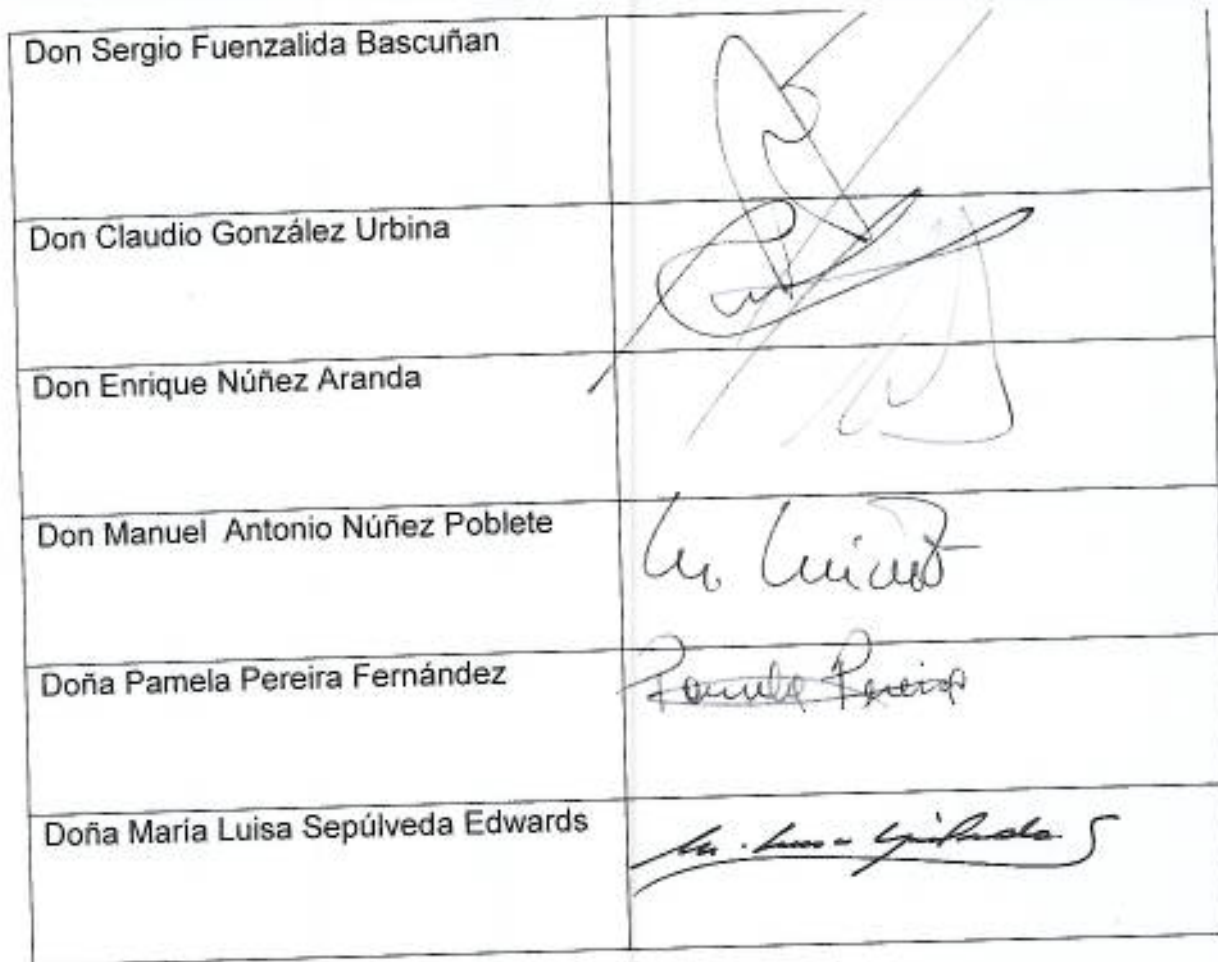 Don Sergio Fuenzalida Bascuñan
Don Claudio González Urbina
Don Enrique Núñez Aranda
Don Manuel  Antonio Núñez Poblete
Doña Pamela Pereira Fernández
Pamela Pereira
Doña María Luisa Sepúlveda Edwards